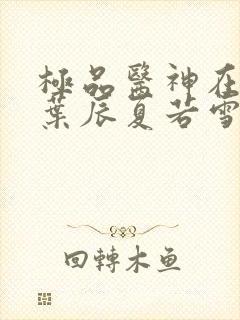 極品醫神在
葉辰夏若雪
回轉木鱼